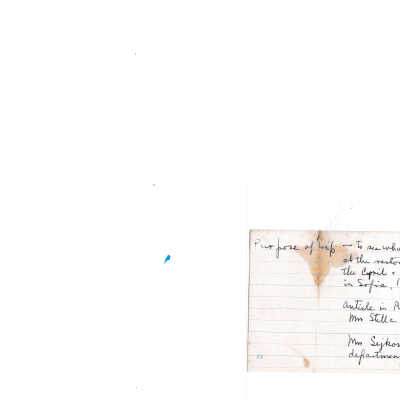 Purpose of trip — to see wha
at the resto
the Cyril +
in Sofia, (
Article in R
Mrs Stella
Mrs Sijkos
departmen